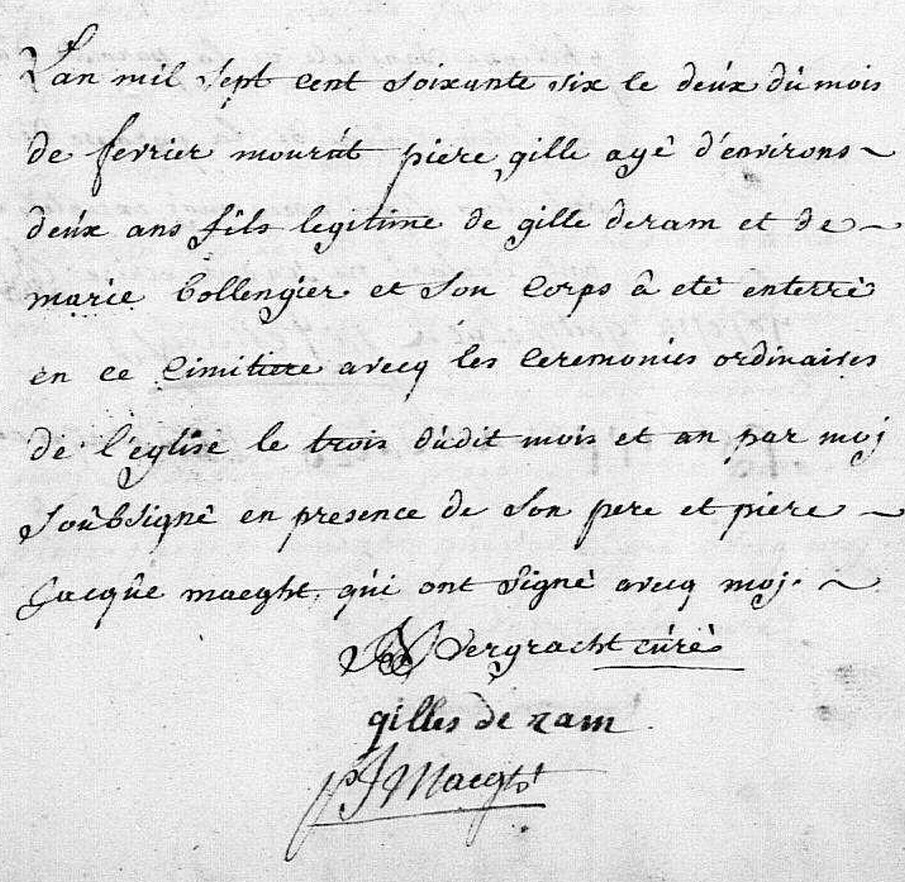 L'an mil sept cent soixante six le deux du mois
de fevrier mourût piere gille agê d'environs ~
deux ans fils legitime de gille deram et de ~
marie bollengier et son corps â etè enterrè
en ce Cimitiere avecq les Ceremonies ordinaires
de l'église le trois dudit mois et an par moj
soûbsignê en presence de son pere et piere ~
Jacque maeght qui ont signè avecq moj. ~
vergracht cúrè
gilles de ram
pJ Maeght